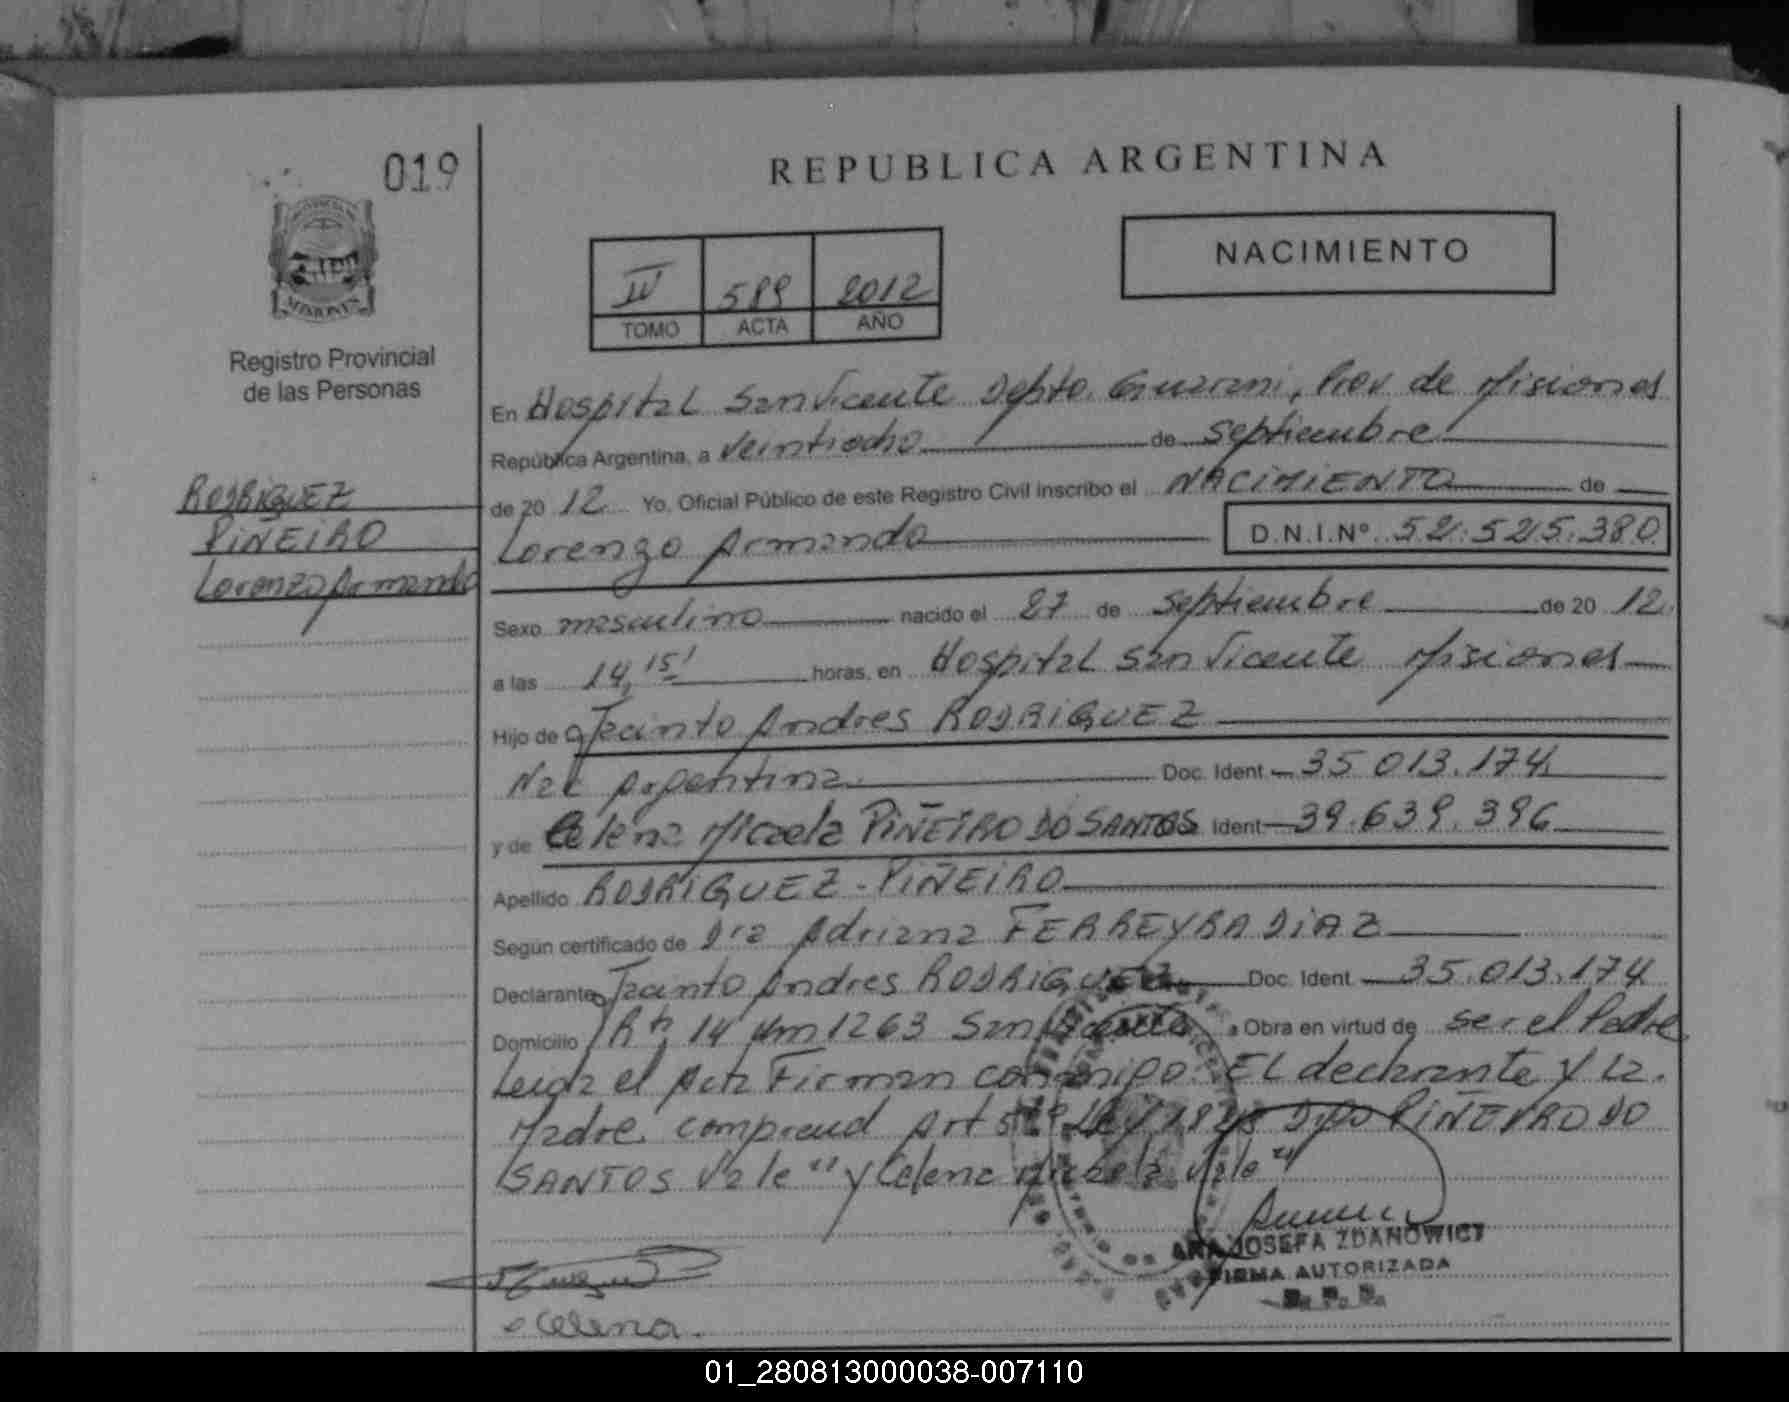 019
REPUBLICA ARGENTINA
NACIMIENTO
MISIONES
589 2012
TOMO ACTA AÑO
Registro Provincial
de las Personas
En Hospital San Vicente Depto. Guarani, Prov. de Misiones
República Argentina, a veintiocho de septiembre
RODRIGUEZ
PIÑEIRO
Lorenzo Armando
de 20 12 Yo, Oficial Público de este Registro Civil inscribo el NACIMIENTO de
Lorenzo Armando D.N.I.Nº 52.525.380
Sexo masculino nacido el 27 de septiembre de 20 12
a las 14,15' horas, en Hospital San Vicente Misiones
Hijo de Jacinto Andres RODRIGUEZ
Nac Argentina Doc. Ident 35 013.174
y de Celena Micaela PIÑEIRO DO SANTOS Ident 39.639.396
Apellido RODRIGUEZ - PIÑEIRO
Según certificado de Dra Adriana FERREYRA DIAZ
Declarante Jacinto Andres RODRIGUEZ Doc. Ident 35.013.174
Domicilio Rta 14 Km 1263 San Vicente Obra en virtud de ser el Padre
Leida el Acta Firman conmigo. EL declarante y La
Madre. comprend Art PIÑEYRO DO
SANTOS Vale" y Celena Micaela Vale"
ANA JOSEFA ZDANOWICZ
FIRMA AUTORIZADA
Celena.
01_280813000038-007110